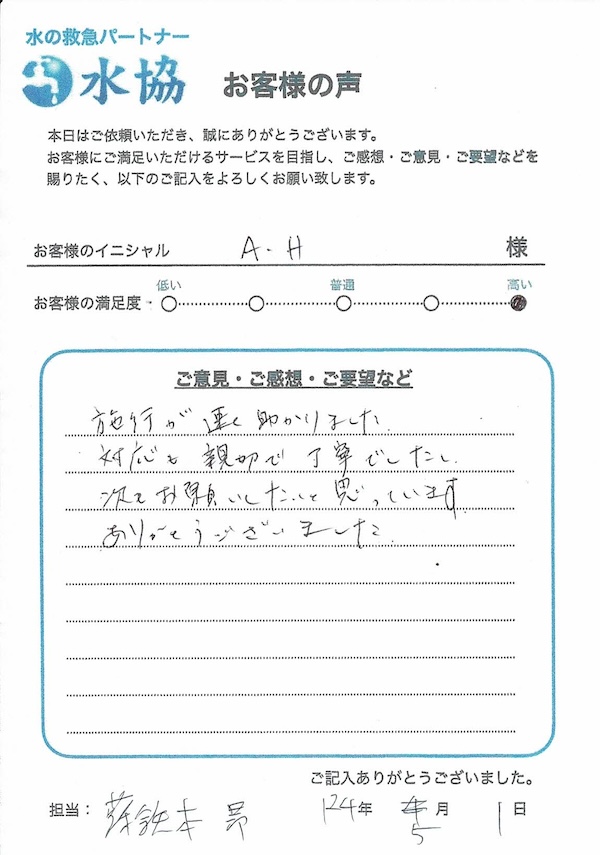 水の救急パートナー
水協 お客様の声
本日はご依頼いただき、誠にありがとうございます。
お客様にご満足いただけるサービスを目指し、ご感想・ご意見・ご要望などを
賜りたく、以下のご記入をよろしくお願い致します。
お客様のイニシャル A-H 様
低い 普通 高い
お客様の満足度
ご意見・ご感想・ご要望など
施行が速く助かりました.
対応も親切で丁寧でしたし
次もお願いしたいと思っています.
ありがとうございました.
ご記入ありがとうございました。
担当： 本 昴 '24年 5月 1日